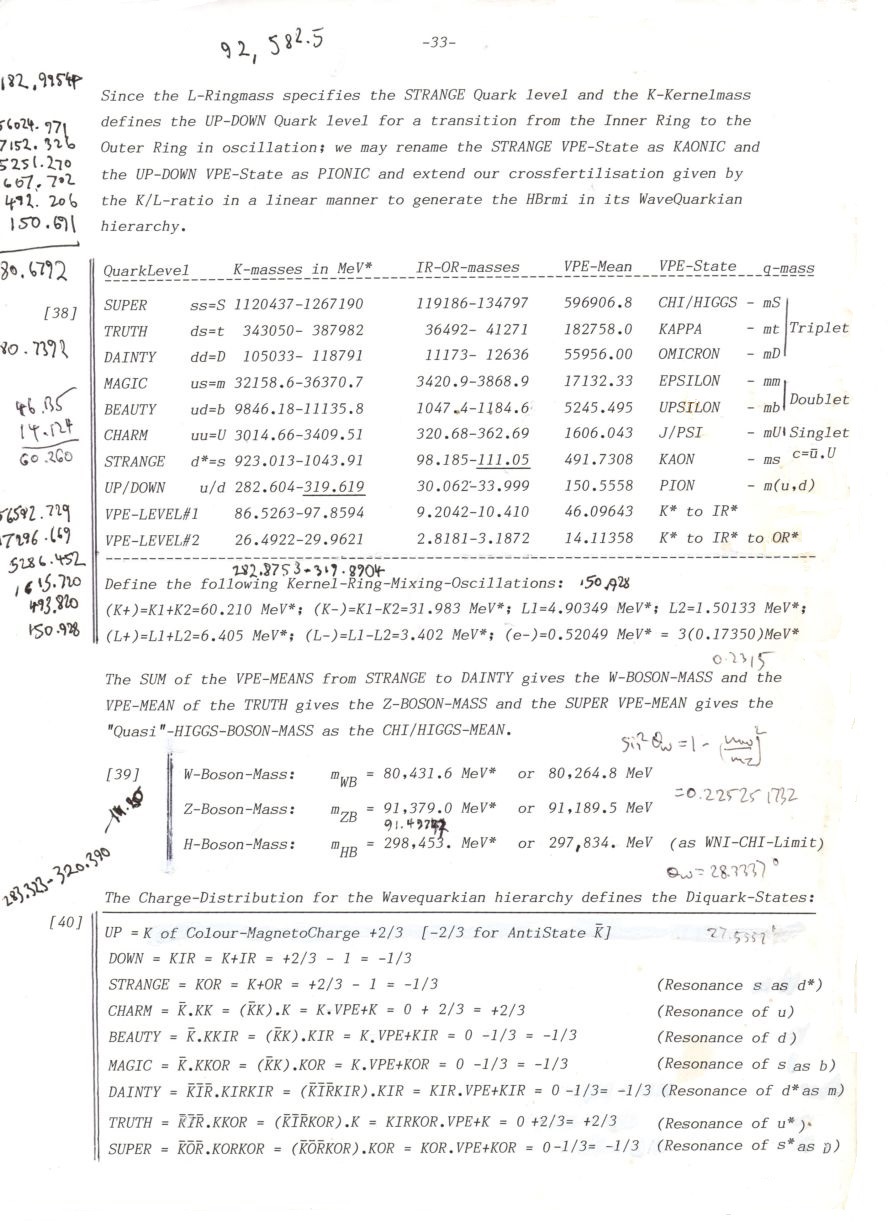 92, 582.5
-33-
182,9954
56024.971
7152.326
5251.270
607.702
492.206
150.691
80.6792
Since the L-Ringmass specifies the STRANGE Quark level and the K-Kernelmass
defines the UP-DOWN Quark level for a transition from the Inner Ring to the
Outer Ring in oscillation; we may rename the STRANGE VPE-State as KAONIC and
the UP-DOWN VPE-State as PIONIC and extend our crossfertilisation given by
the K/L-ratio in a linear manner to generate the HBrmi in its WaveQuarkian
hierarchy.
QuarkLevel K-masses in MeV* IR-OR-masses VPE-Mean VPE-State q-mass
[38]
SUPER ss=S 1120437-1267190 119186-134797 596906.8 CHI/HIGGS - mS
TRUTH ds=t 343050- 387982 36492- 41271 182758.0 KAPPA - mt Triplet
80.7392
DAINTY dd=D 105033- 118791 11173- 12636 55956.00 OMICRON - mD
MAGIC us=m 32158.6-36370.7 3420.9-3868.9 17132.33 EPSILON - mm
46.135
BEAUTY ud=b 9846.18-11135.8 1047.4-1184.6 5245.495 UPSILON - mb Doublet
14.124
CHARM uu=U 3014.66-3409.51 320.68-362.69 1606.043 J/PSI - mU Singlet
60.260
STRANGE d*=s 923.013-1043.91 98.185-111.05 491.7308 KAON - ms c=ū.U
UP/DOWN u/d 282.604-319.619 30.062-33.999 150.5558 PION - m(u,d)
VPE-LEVEL#1 86.5263-97.8594 9.2042-10.410 46.09643 K* to IR*
VPE-LEVEL#2 26.4922-29.9621 2.8181-3.1872 14.11358 K* to IR* to OR*
56592.729
17296.669
5286.452
1615.720
493.820
150.928
282.8753-319.8904
Define the following Kernel-Ring-Mixing-Oscillations: 150,928
(K+)=K1+K2=60.210 MeV*; (K-)=K1-K2=31.983 MeV*; L1=4.90349 MeV*; L2=1.50133 MeV*;
(L+)=L1+L2=6.405 MeV*; (L-)=L1-L2=3.402 MeV*; (e-)=0.52049 MeV* = 3(0.17350)MeV*
0.2315
The SUM of the VPE-MEANS from STRANGE to DAINTY gives the W-BOSON-MASS and the
VPE-MEAN of the TRUTH gives the Z-BOSON-MASS and the SUPER VPE-MEAN gives the
"Quasi"-HIGGS-BOSON-MASS as the CHI/HIGGS-MEAN.
Sin²θw = 1 - (mw/mz)²
[39] W-Boson-Mass: mWB = 80,431.6 MeV* or 80,264.8 MeV
=0.225251732
Z-Boson-Mass: mZB = 91,379.0 MeV* or 91,189.5 MeV
H-Boson-Mass: mHB = 298,453. MeV* or 297,834. MeV (as WNI-CHI-Limit)
283.323-320.390
θw=28.3337°
The Charge-Distribution for the Wavequarkian hierarchy defines the Diquark-States:
[40]
UP = K of Colour-MagnetoCharge +2/3 [-2/3 for AntiState K̄]
DOWN = KIR = K+IR = +2/3 - 1 = -1/3
STRANGE = KOR = K+OR = +2/3 - 1 = -1/3 (Resonance s as d*)
CHARM = K̄.KK = (K̄K).K = K.VPE+K = 0 + 2/3 = +2/3 (Resonance of u)
BEAUTY = K̄.KKIR = (K̄K).KIR = K.VPE+KIR = 0 -1/3 = -1/3 (Resonance of d)
MAGIC = K̄.KKOR = (K̄K).KOR = K.VPE+KOR = 0 -1/3 = -1/3 (Resonance of s as b)
DAINTY = K̄ĪR̄.KIRKIR = (K̄ĪR̄KIR).KIR = KIR.VPE+KIR = 0 -1/3= -1/3 (Resonance of d* as m)
TRUTH = K̄ĪR̄.KKOR = (K̄ĪR̄KOR).K = KIRKOR.VPE+K = 0 +2/3= +2/3 (Resonance of u*).
SUPER = K̄ŌR̄.KORKOR = (K̄ŌR̄KOR).KOR = KOR.VPE+KOR = 0-1/3= -1/3 (Resonance of s* as D)